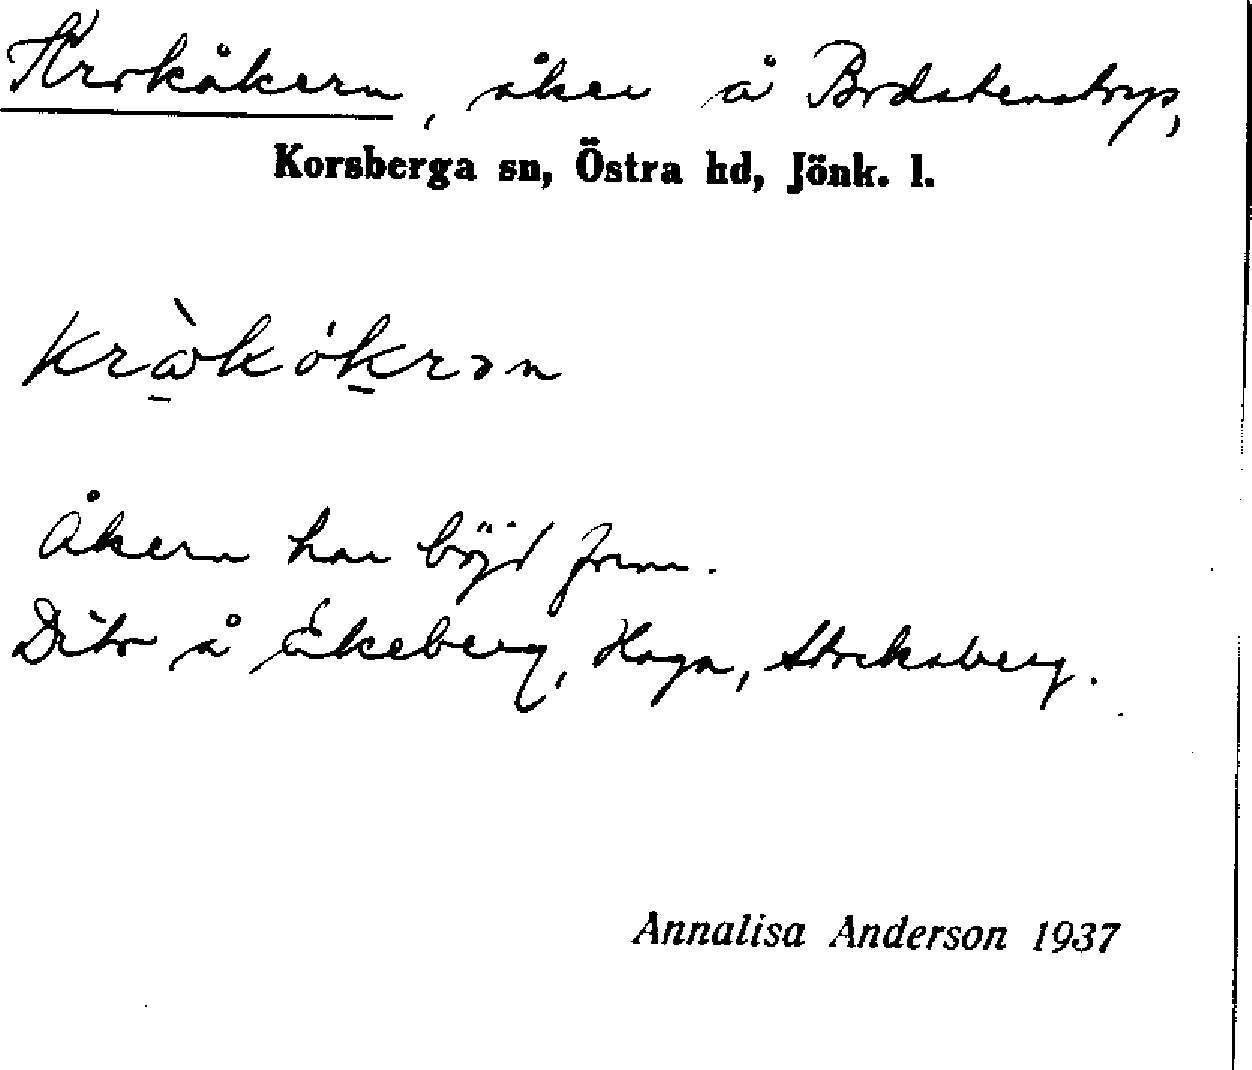 Krokåkern, åker å Brdstenstorp,
Korsberga sn, Östra hd, Jönk. l.
kràkókrən
Åkern har böjd form.
Dito å Ekeberg, Haga, Stocksberg.
Annalisa Anderson 1937